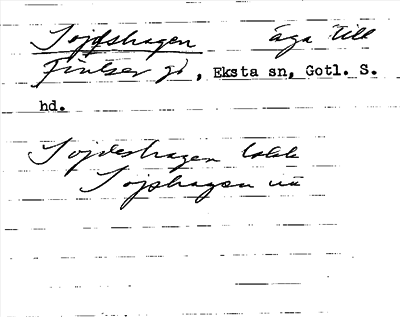 Sojdshagen äga till
Finlser gd, Eksta sn, Gotl. S.
hd.
Sojdeshagen
Sojshagen